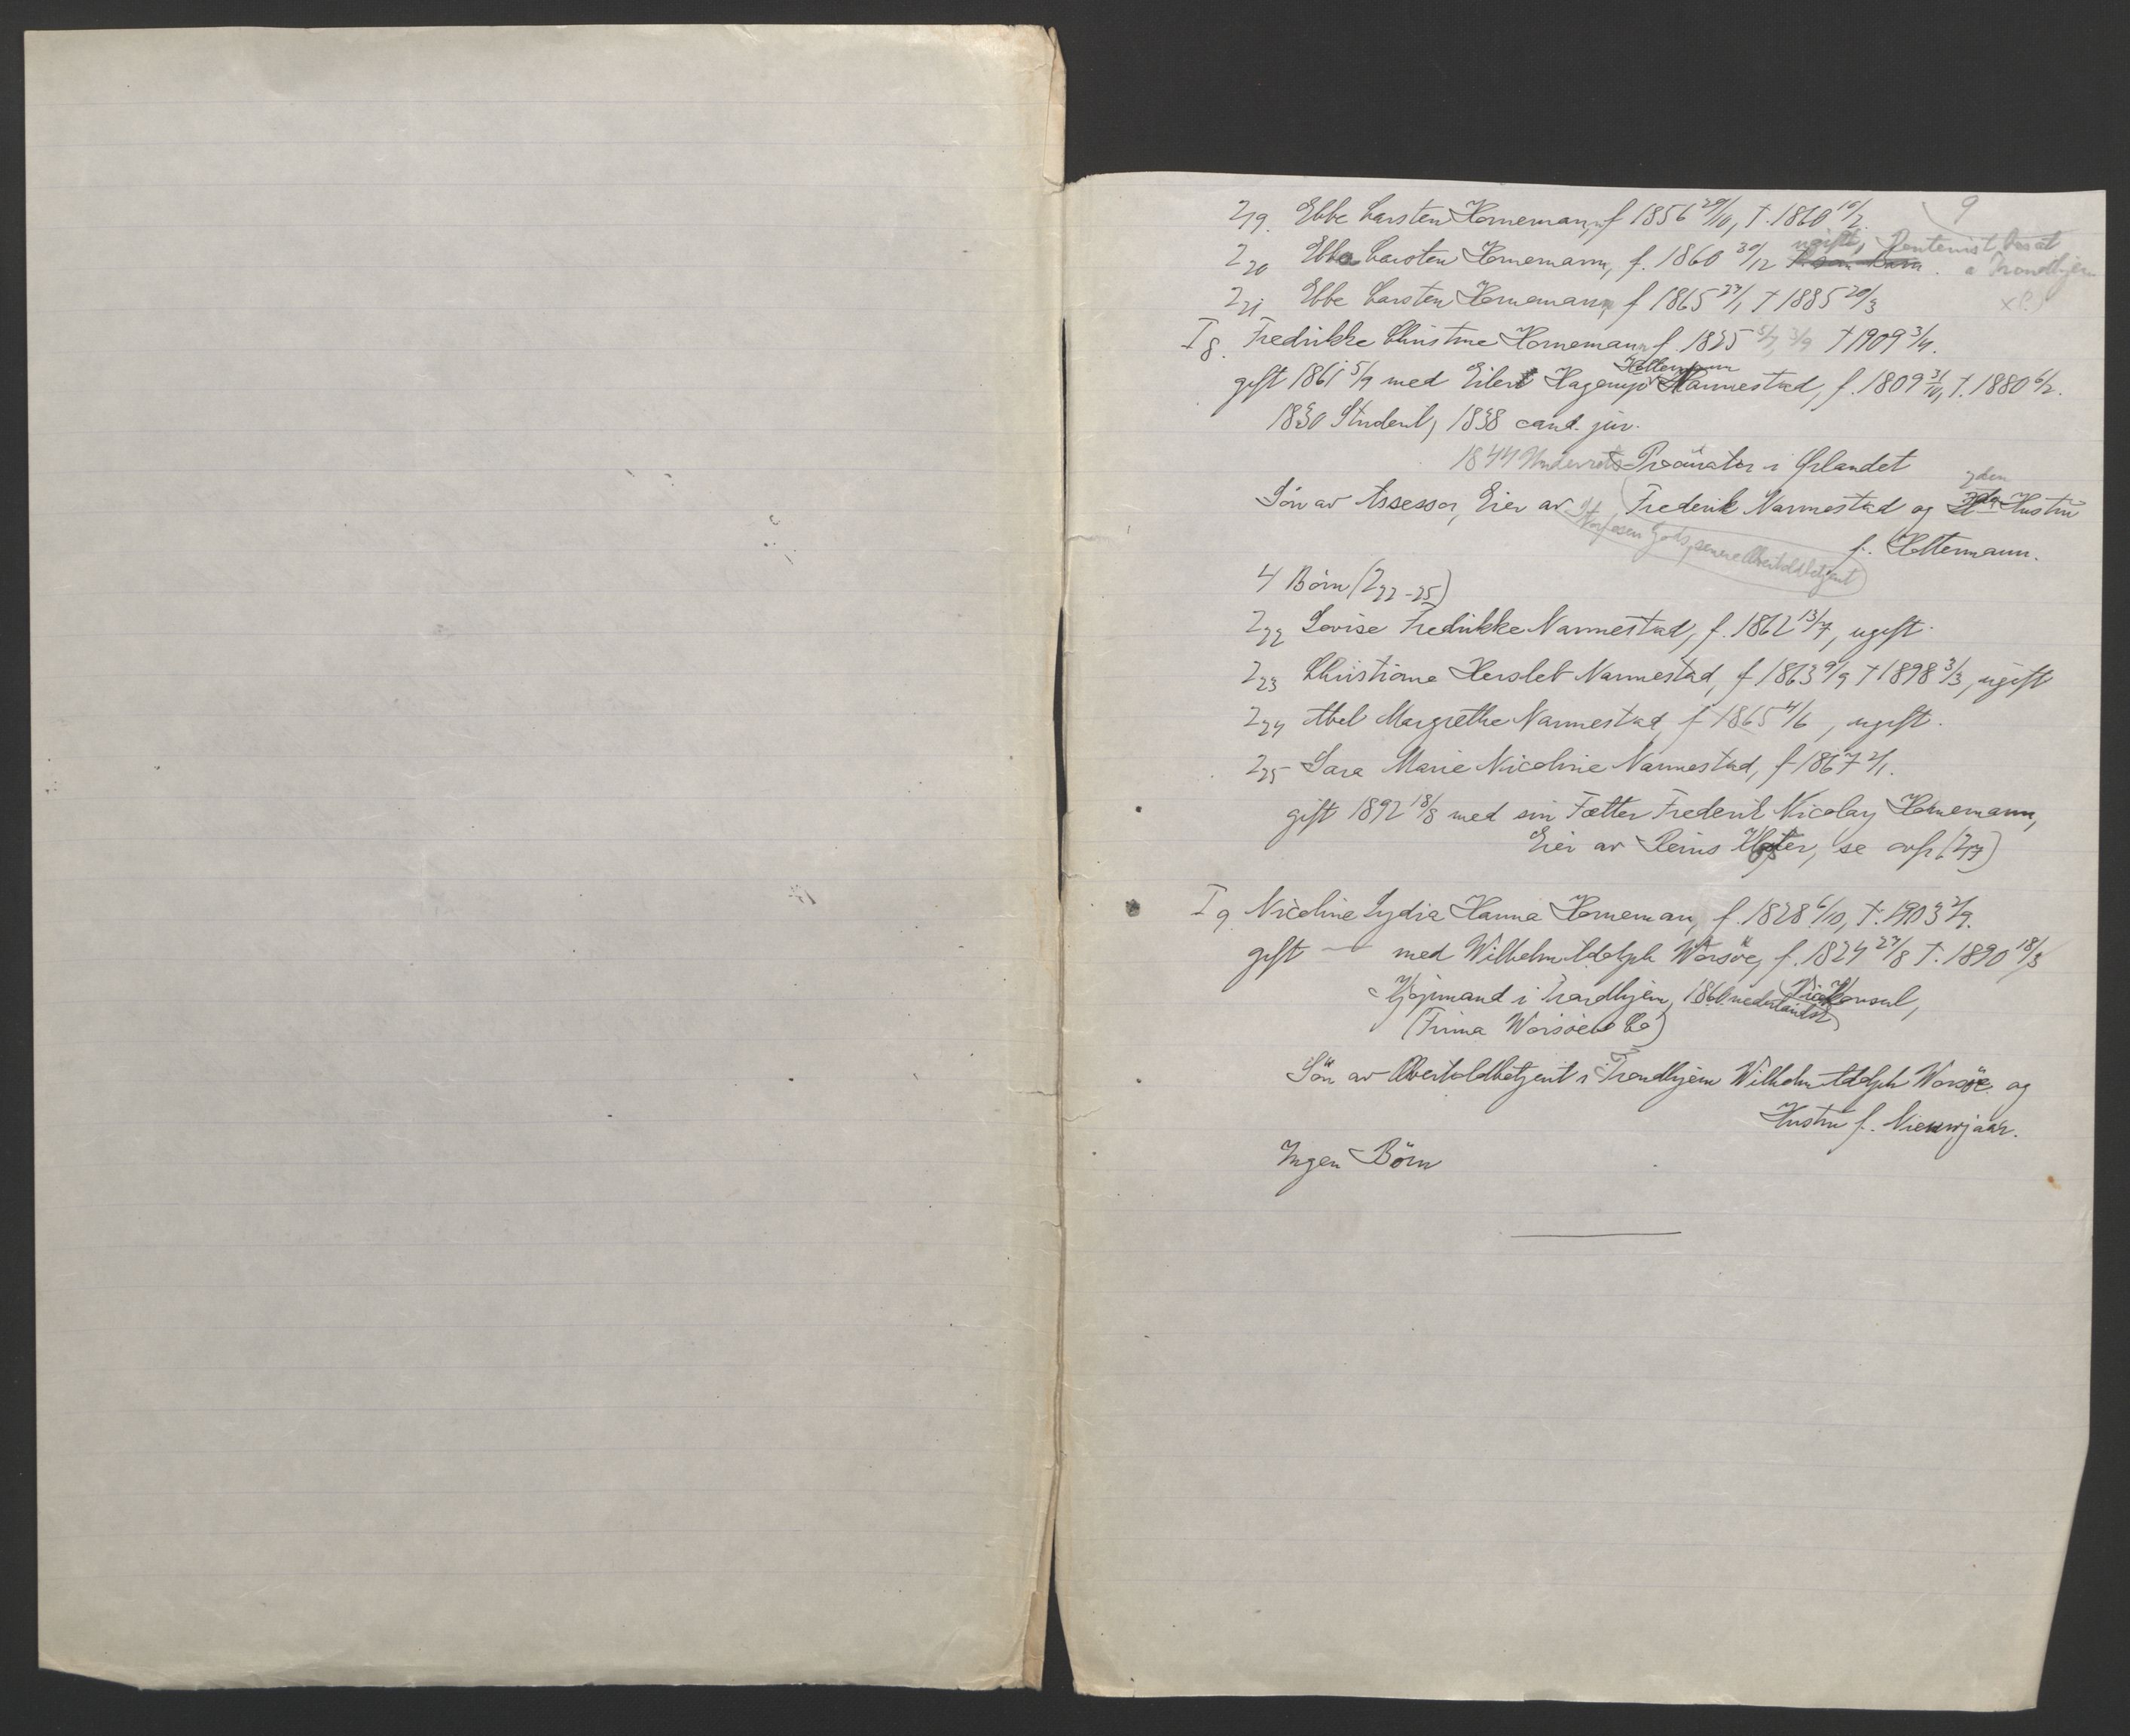 9
2 19. Ebbe Carsten Hornemann, f 1856 29/10, † 1860 10/2.
ugift, Rentenist bosat
2 20 Ebbe Carsten Hornemann, f. 1860 30/12 a Trondhjem
2 21 Ebbe Carsten Hornemann, f 1865 27/1 † 1885 20/3
I 8. Fredrikke Christine Hornemann f. 1825 5/7, 3/9 † 1909 3/4.
gift 1861 5/9 med Eilert Hagerup Nannestad, f. 1809 31/10, † 1880 6/2.
1830 Student, 1838 cand. jur.
1844 Prokurator i Ørlandet
Søn av Assessor, Eier av Frederik Nannestad og 2den Hustru
Gods, senere Overtoldbetjent
f. Holtermann.
4 Børn (2 22-25)
2 22 Lovise Fredrikke Nannestad, f. 1862 13/7, ugift.
2 23 Christiane Herslet Nannestad, f 1863 9/9 † 1898 3/3, ugift
2 24 Abel Margrethe Nannestad, f 1865 4/6, ugift.
2 25 Sara Marie Nicoline Nannestad, f 1867 2/1.
gift 1892 18/8 med sin Fætter Frederik Nicolay Hornemann,
Eier av Reins Kloster, se (2 17)
I 9 Nicoline Lydia Hanna Horneman, f. 1828 6/10, †. 1903 2/9.
gift — med Wilhelm Adolph Worsöe, f. 1824 27/8 †. 1890 18/3
Kjøpmand i Trondhjem, 1860 nederlandsk Vicekonsul,
(Firma Worsöe & Co)
Søn av Overtoldbetjent i Trondhjem Wilhelm Adolph Worsöe og
Hustru f. Nieuwjaar.
Ingen Børn